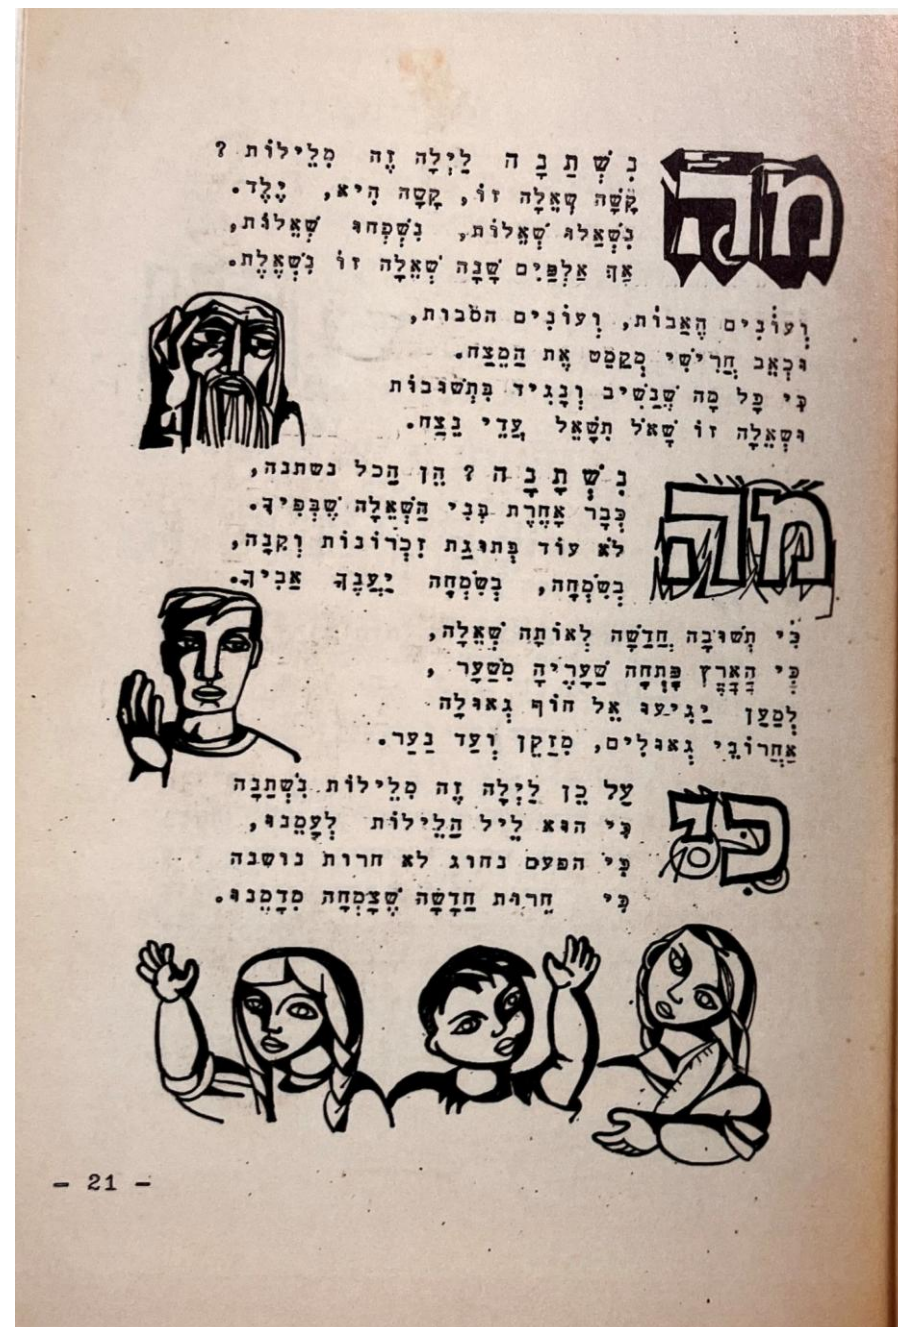 מַה נִשְׁתַנָה לַיְלָה זֶה מִלֵילוֹת ?
קָשָׁה שְׁאֵלָה זוֹ, קָשָׁה הִיא, יֶלֶד.
נִשְׁאֲלוּ שְׁאֵלוֹת, נִשְׁפְּחוּ שְׁאֵלוֹת,
אַךְ אַלְפַּיִם שָׁנָה שְׁאֵלָה זוֹ נִשְׁאֶלֶת.
וְעוֹנִים הָאַבוֹת, וְעוֹנִים הסבות,
וּכְאֵב חֲרִישִׁי מְקַמֵט אֶת הַמֵצַח.
כִּי כָּל מַה שֶׁנַשִׁיב וְנַגִיד בִּתְשׁוּבוֹת
וּשְׁאֵלָה זוֹ שָׁאֹל תִשָׁאֵל עֲדֵי נֵצַח.
מַה נִשְׁתָנָה ? הֵן הַכל נשתנה,
כְּבָר אַחֶרֶת פְּנֵי הַשְׁאֵלָה שֶׁבְּפִיךָ.
לֹא עוֹד פְּתוּגַת זִכְרוֹנוֹת וְקִנָה,
בְּשִׂמְחָה, בְּשִׂמְחָה יַעֲנֶךָ אַבִיךָ.
כִּי תְשׁוּבָה חֲדָשָׁה לְאוֹתָה שְׁאֵלָה,
כִּי הָאָרֶץ פָּתְחָה שַׁעָרֶיהָ מִשַׁעַר ,
לְמַעַן יַגִיעוּ אֶל חוֹף גְאוּלָה
אַחֲרוֹנֵי גְאוּלִים, מִזַקֵן וְעַד נַעַר.
כִּי עַל כֵן לַיְלָה זֶה מִלֵילוֹת נִשְׁתַנָה
כִּי הוּא לֵיל הַלֵילוֹת לְעַמֵנוּ,
כִּי הפעם נחוג לא חרות נושנה
כִּי חֵרוּת חֲדָשָׁה שֶׁצָמְחָה מִדָמֵנוּ.
- 21 -